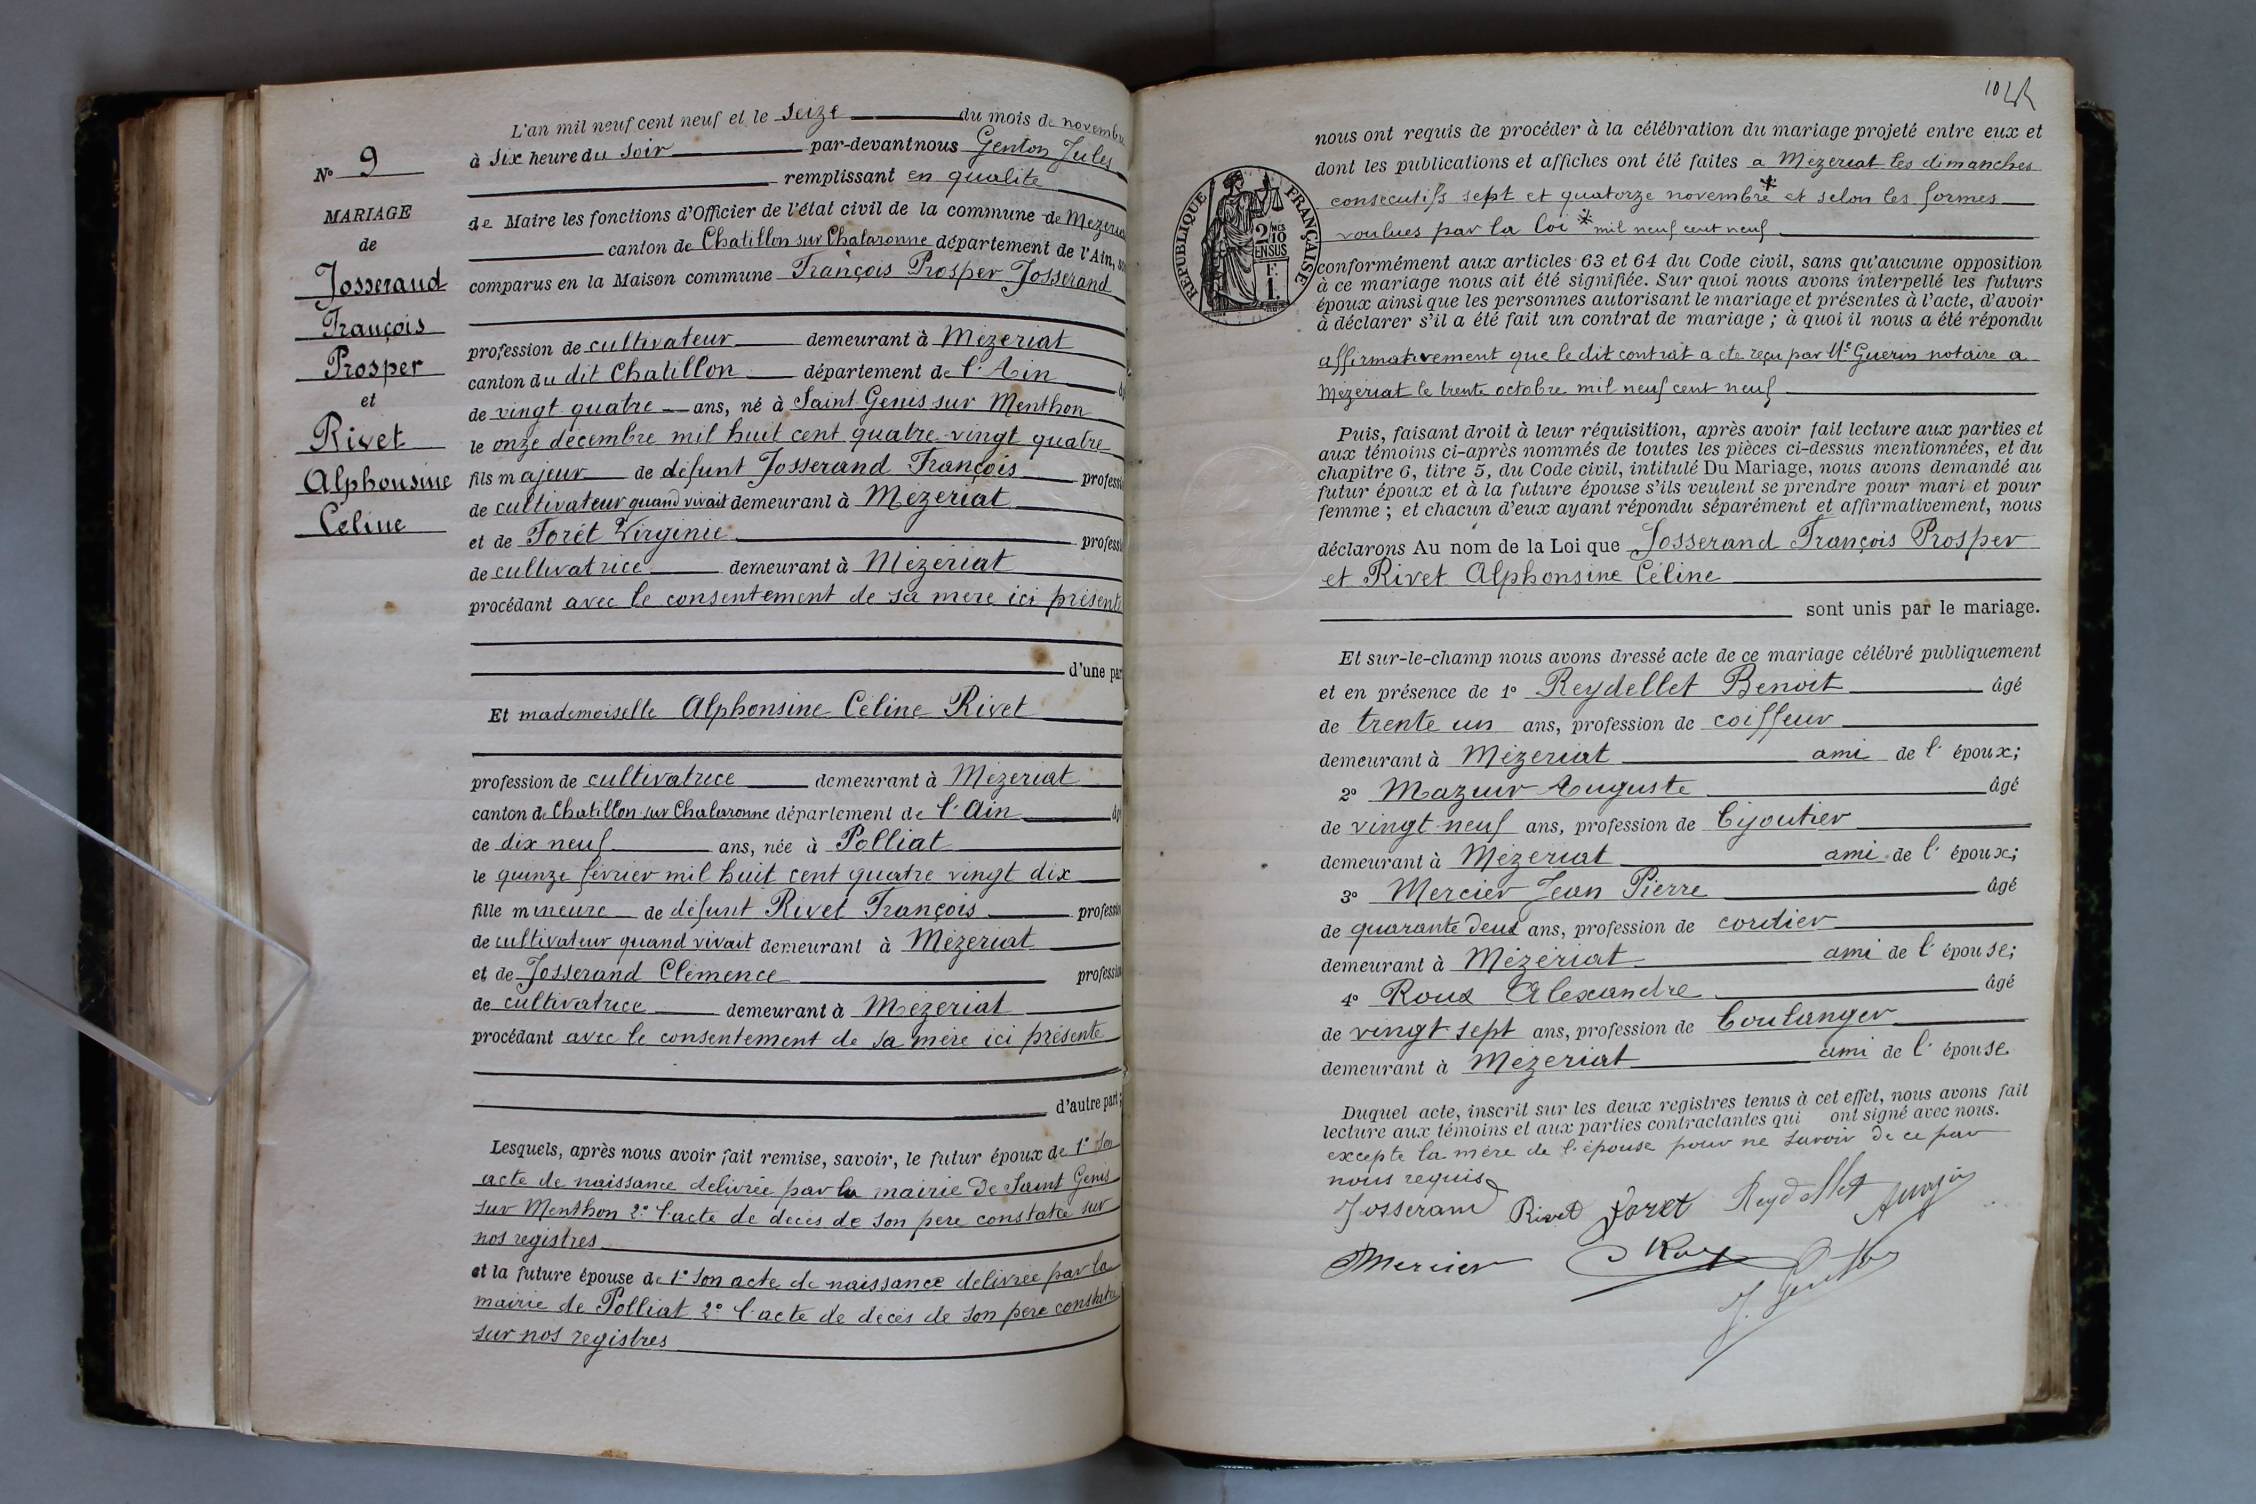 N° 9
MARIAGE
de
Josserand
François
Prosper
et
Rivet
Alphonsine
Celine
L'an mil neuf cent neuf et le seize du mois de novembre
à six heure du soir par-devant nous Genton Jules
remplissant en qualité
de Maire les fonctions d'Officier de l'état civil de la commune de Mezeriat
canton de Chatillon sur Chalaronne département de l'Ain,
comparus en la Maison commune François Prosper Josserand
profession de cultivateur demeurant à Mezeriat
canton du dit Chatillon département de l'Ain
de vingt quatre ans, né à Saint Genis sur Menthon
le onze décembre mil huit cent quatre-vingt quatre
fils majeur de défunt Josserand François professi
de cultivateur quand vivait demeurant à Mézériat
et de Forêt Virginie professi
de cultivatrice demeurant à Mézériat
procédant avec le consentement de sa mère ici présente
d'une par
Et mademoiselle Alphonsine Céline Rivet
profession de cultivatrice demeurant à Mézeriat
canton de Chatillon sur Chalaronne département de l'Ain
de dix neuf ans, née à Polliat
le quinze février mil huit cent quatre vingt dix
fille mineure de défunt Rivet François profession
de cultivateur quand vivait demeurant à Mézeriat
et de Josserand Clémence profession
de cultivatrice demeurant à Mézeriat
procédant avec le consentement de sa mère ici présente
d'autre part;
Lesquels, après nous avoir fait remise, savoir, le futur époux de 1° son
acte de naissance délivrée par la mairie de Saint Genis
sur Menthon 2° l'acte de décès de son père constaté sur
nos registres
et la future épouse de 1° son acte de naissance délivrée par la
mairie de Polliat 2° l'acte de décès de son père constaté
sur nos registres
104
RÉPUBLIQUE FRANÇAISE
2/10
EN SUS
F.
1.
nous ont requis de procéder à la célébration du mariage projeté entre eux et
dont les publications et affiches ont été faites a Mézeriat les dimanches
consecutifs sept et quatorze novembre * et selon les formes
voulues par la loi * mil neuf cent neuf
conformément aux articles 63 et 64 du Code civil, sans qu'aucune opposition
à ce mariage nous ait été signifiée. Sur quoi nous avons interpellé les futurs
époux ainsi que les personnes autorisant le mariage et présentes à l'acte, d'avoir
à déclarer s'il a été fait un contrat de mariage; à quoi il nous a été répondu
affirmativement que le dit contrat a été reçu par Me Guerin notaire a
Mézériat le trente octobre mil neuf cent neuf
Puis, faisant droit à leur réquisition, après avoir fait lecture aux parties et
aux témoins ci-après nommés de toutes les pièces ci-dessus mentionnées, et du
chapitre 6, titre 5, du Code civil, intitulé Du Mariage, nous avons demandé au
futur époux et à la future épouse s'ils veulent se prendre pour mari et pour
femme; et chacun d'eux ayant répondu séparément et affirmativement, nous
déclarons Au nom de la Loi que Josserand François Prosper
et Rivet Alphonsine Céline
sont unis par le mariage.
Et sur-le-champ nous avons dressé acte de ce mariage célébré publiquement
et en présence de 1° Reydellet Benoit âgé
de trente un ans, profession de coiffeur
demeurant à Mézeriat ami de l'époux;
2° Mazuir Auguste âgé
de vingt-neuf ans, profession de bijoutier
demeurant à Mézeriat ami de l'époux;
3° Mercier Jean Pierre âgé
de quarante deux ans, profession de cordier
demeurant à Mézériat ami de l'épouse;
4° Roux Alexandre âgé
de vingt-sept ans, profession de boulanger
demeurant à Mézeriat ami de l'épouse
Duquel acte, inscrit sur les deux registres tenus à cet effet, nous avons fait
lecture aux témoins et aux parties contractantes qui ont signé avec nous.
excepte la mère de l'épouse pour ne savoir de ce par
nous requise
Josserand Rivet Foret Reydellet
Mercier Roux
J. Genton